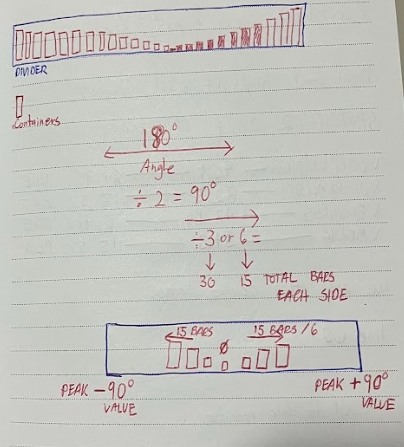 DIVIDER
Containers
180°
Angle
÷ 2 = 90°
÷3 or 6 =
30 15 TOTAL BARS
EACH SIDE
15 BARS 15 BARS / 6
Ø
PEAK -90° PEAK +90°
VALUE VALUE